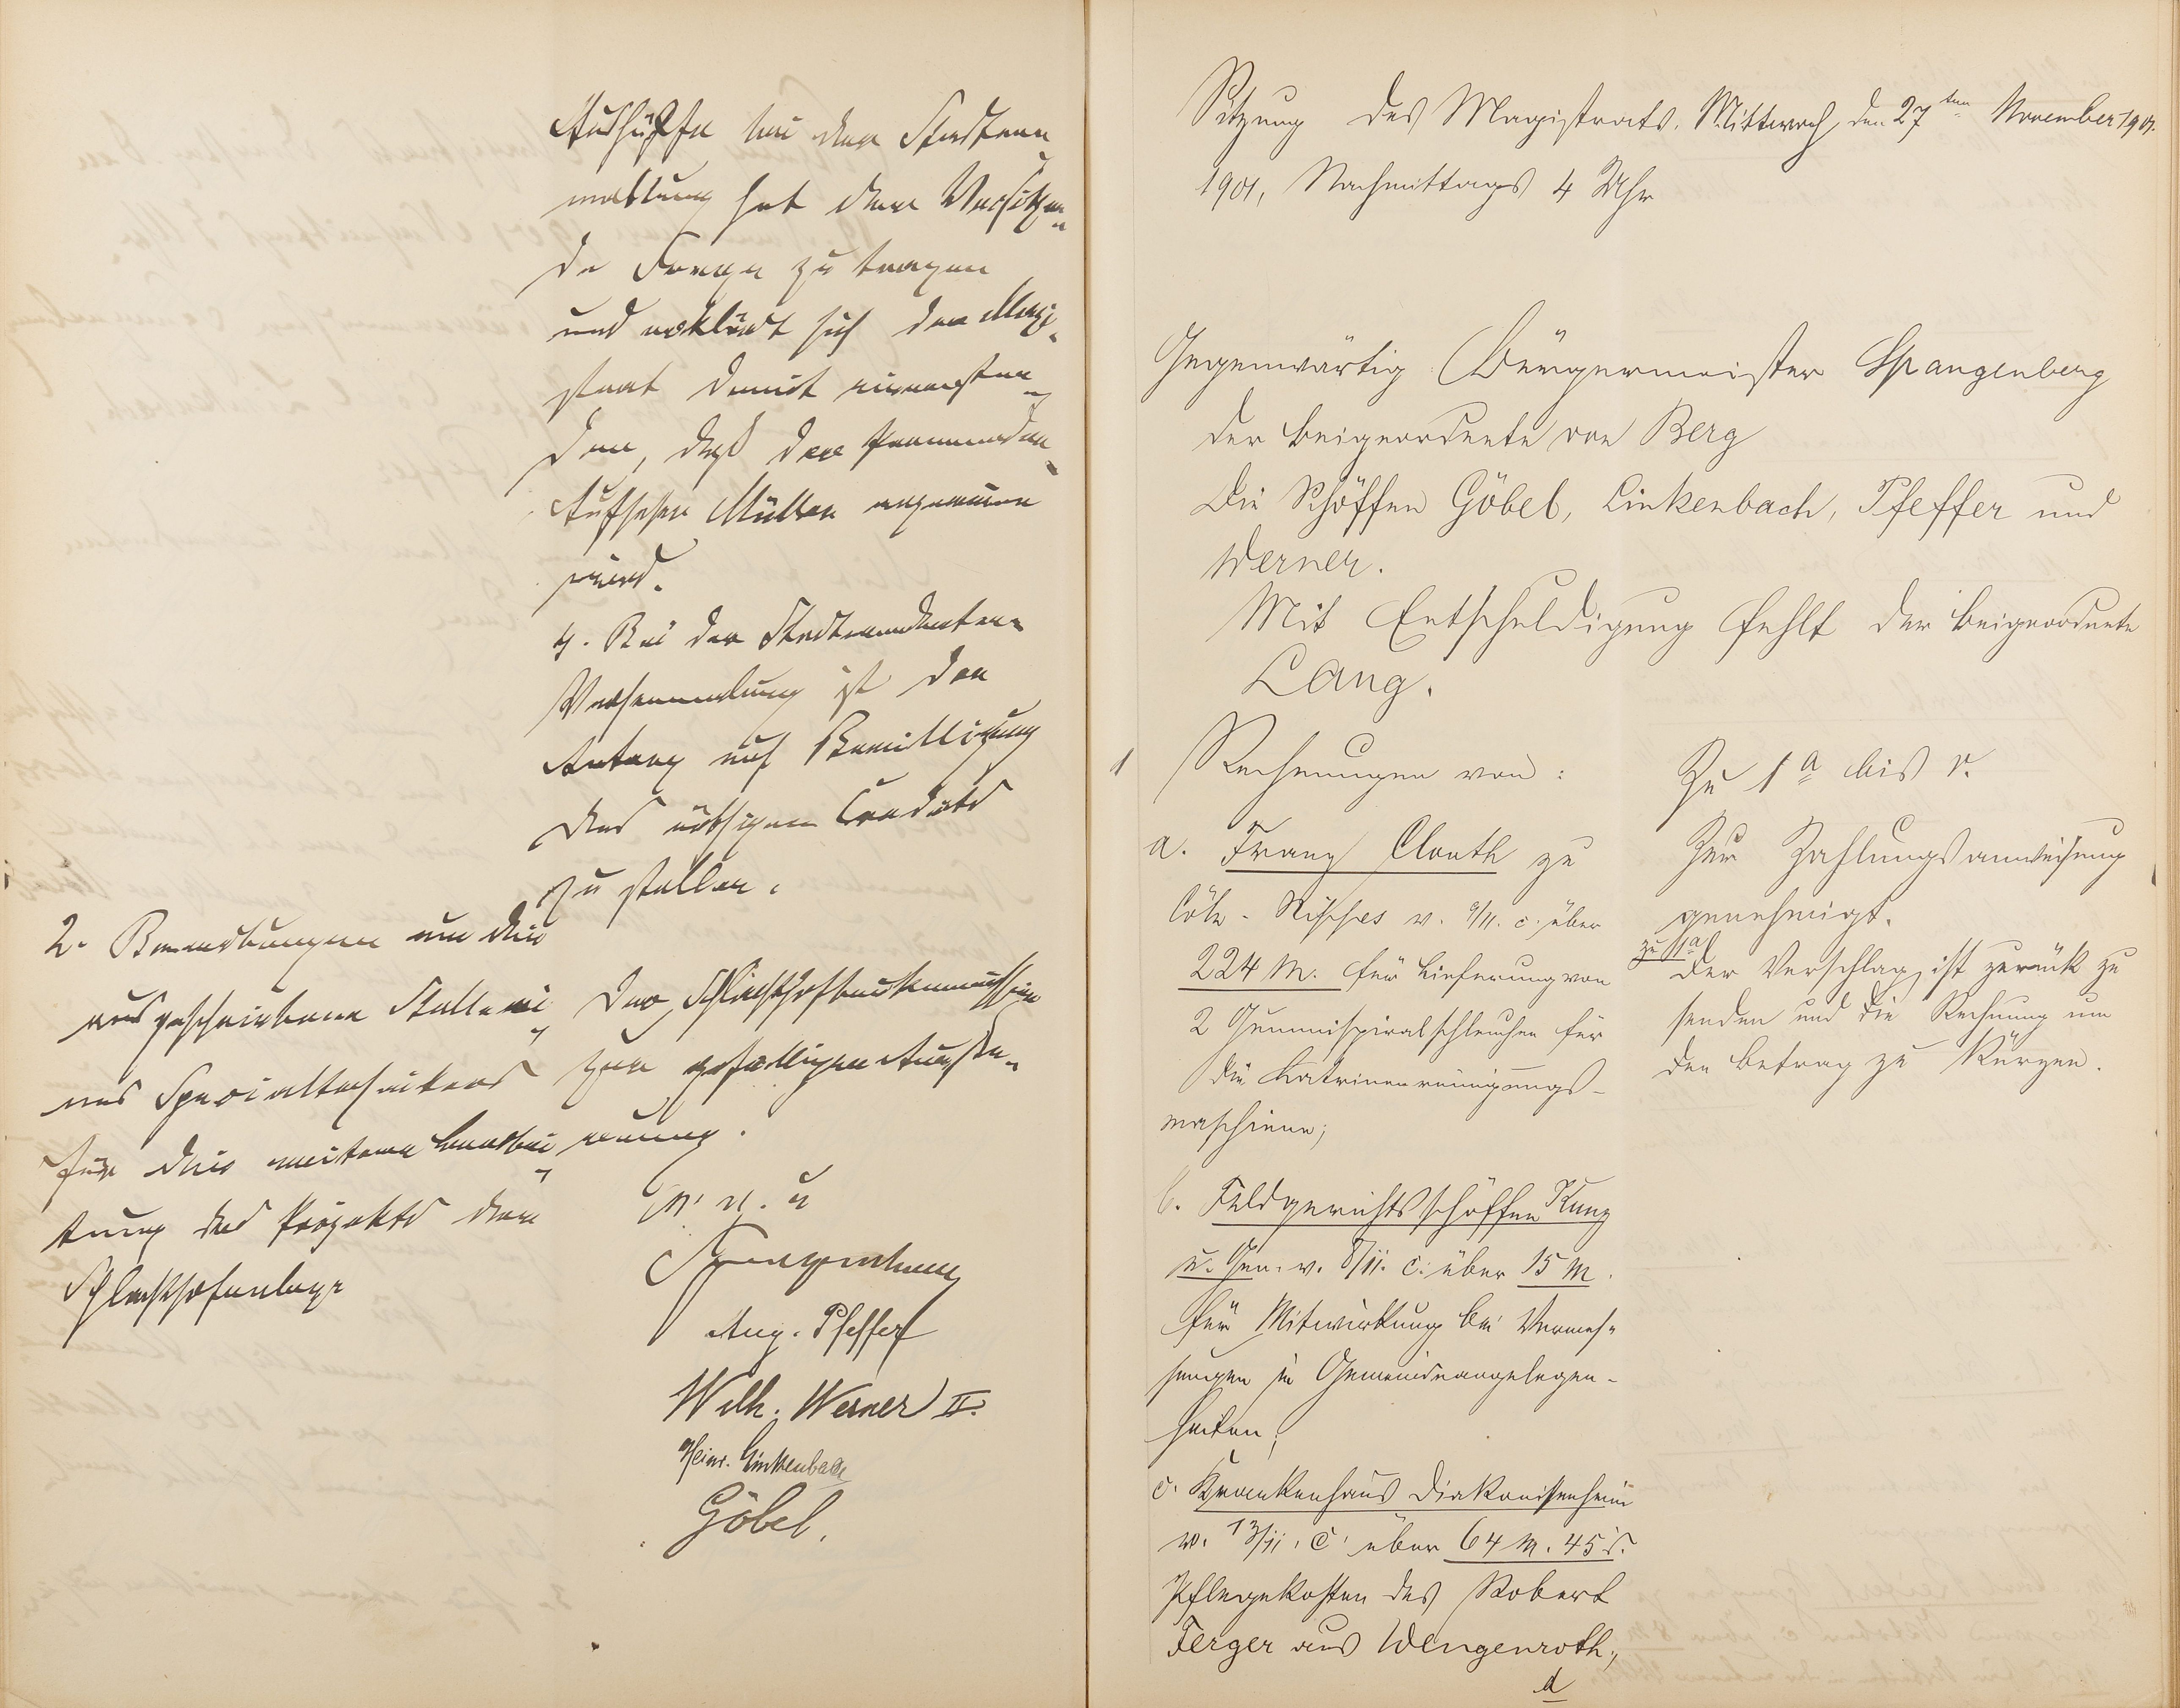 Aushülfe bei der Stadtver¬
waltung hat der Vorsitzen¬
de Sorge zu tragen
und erklärt sich der Magi¬
strat damit einverstan¬
den, daß der Promenaden¬
Aufseher Müller angenommen
wird.
4. Bei der Stadtverordneten¬
Versammlung ist der
Antrag auf Bewilligung
des nöthigen Credits
zu stellen.
2. Bewerbungen um die
ausgeschriebene Stelle ei¬
nes Specialtechnikers
für die weitere Bearbei¬
tung des Projekts der
Schlachthofanlage
Der Schlachthofbaukommission
zur gefälligen Aeuße¬
rung.
v. g. u
Spangenberg
Aug. Pfeffer
Wilh. Werner II.
Heinr. Linkenbach
Göbel.
Sitzung des Magistrats. Mittwoch, den 27ten November 1901.
1901, Nachmittags 4 Uhr
Gegenwärtig: Bürgermeister Spangenberg
der Beigeordnete von Berg
Die Schöffen Göbel, Linkenbach, Pfeffer und
Werner.
Mit Entschuldigung fehlt der Beigeordnete
Lang.
1 Rechnungen von:
a. Franz Clouth zu
Cöln-Nippes v. 9/11. c. über
224 M. für Lieferung von
2 Gummispiralschläuchen für
die Latrinenreinigungs-
maschine;
b. Feldgerichtsschöffen Kunz
u. Gen. v. 8/11. c. über 15 M.
für Mitwirkung bei Vermes¬
sungen in Gemeindeangelegen-
heiten;
c. Krankenhaus Diakonissenheim
v. 13/11. c. über 64 M. 45 d.
Pflegekosten des Robert
Ferger aus Wengenroth;
d
Zu 1 a bis r.
Zur Zahlungsanweisung
genehmigt.
zu 1a Der Verschlag ist zurück zu
senden und die Rechnung um
den Betrag zu kürzen.